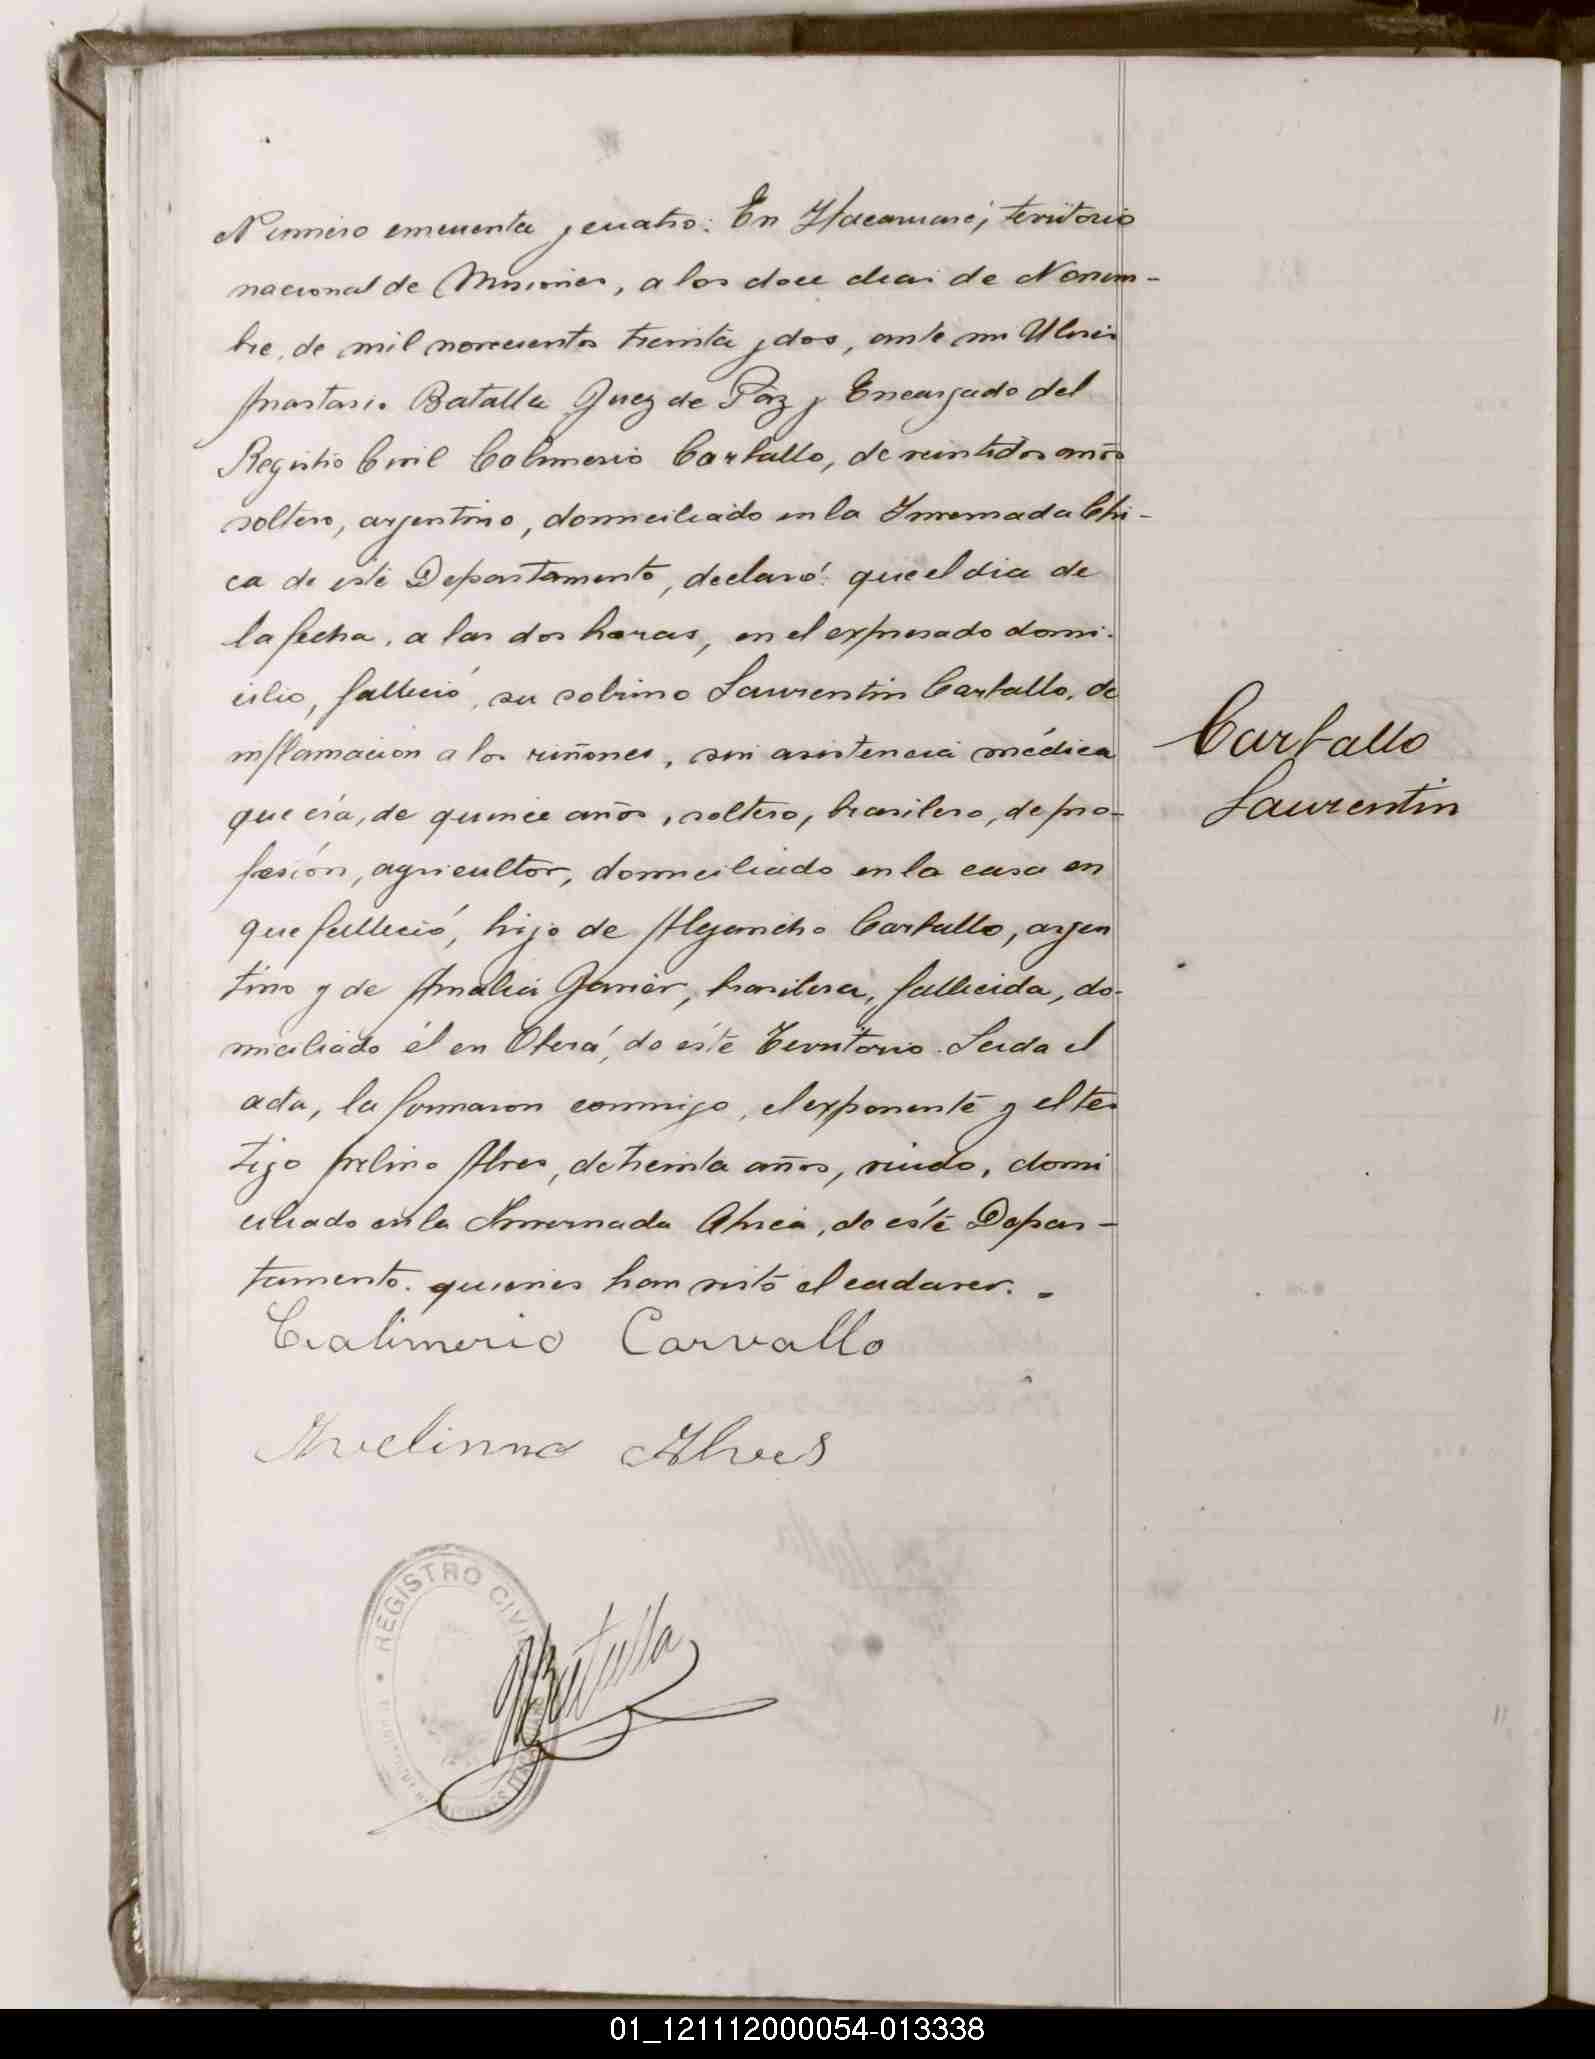 Número cincuenta y cuatro: En Itacaruaré, territorio
nacional de Misiones, a los doce dias de Noviem-
bre, de mil novecientos treinta y dos, ante mi Ulises
Anastasio Batalla Juez de Paz y Encargado del
Registro Civil Calimerio Carballo, de veintidos años
soltero, argentino, domiciliado en la Invernada Chi-
ca de este Departamento, declaró: que el dia de
la fecha, a las dos horas, en el expresado domi-
cilio, falleció, su sobrino Laurentin Carballo, de
inflamación a los riñones, sin asistencia médica
que era, de quince años, soltero, brasilero, de pro-
fesión, agricultor, domiciliado en la casa en
que falleció, hijo de Alejandro Carballo, argen
tino y de Amalia, brasilera, fallecida, do-
miciliado él en Oberá, de éste Territorio. Leida el
acta, la firmaron conmigo, el exponente y el tes
tigo Avelino Alves, de treinta años, viudo, domi
ciliado en la Invernada Chica, de éste Depar-
tamento. quienes han visto el cadaver. -
Calimerio Carvallo
Avelinno Alves
Carballo
Laurentin
REGISTRO CIVIL
Batalla
01_121112000054-013338